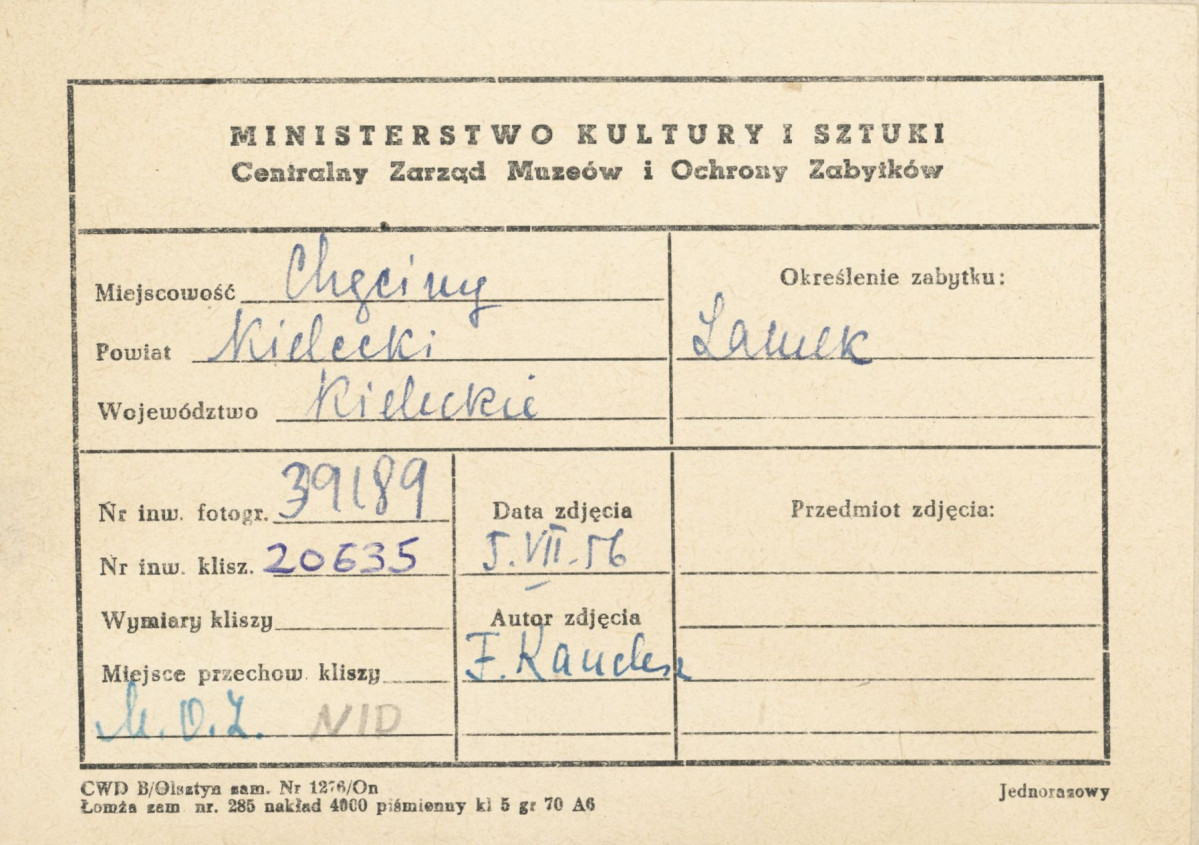 MINISTERSTWO KULTURY I SZTUKI
Centralny Zarząd Muzeów i Ochrony Zabytków
Miejscowość Chęciny
Powiat Kielecki
Województwo Kieleckie
Określenie zabytku:
Zamek
Nr inw. fotogr. 39189
Nr inw. klisz. 20635
Wymiary kliszy
Miejsce przechow. kliszy
M.O.Z. NID
Data zdjęcia
5.VII.56
Autor zdjęcia
F. Kandefer
Przedmiot zdjęcia:
CWD B/Olsztyn zam. Nr 1276/On
Łomża zam nr. 285 nakład 4000 piśmienny kl 5 gr 70 A6
Jednorazowy